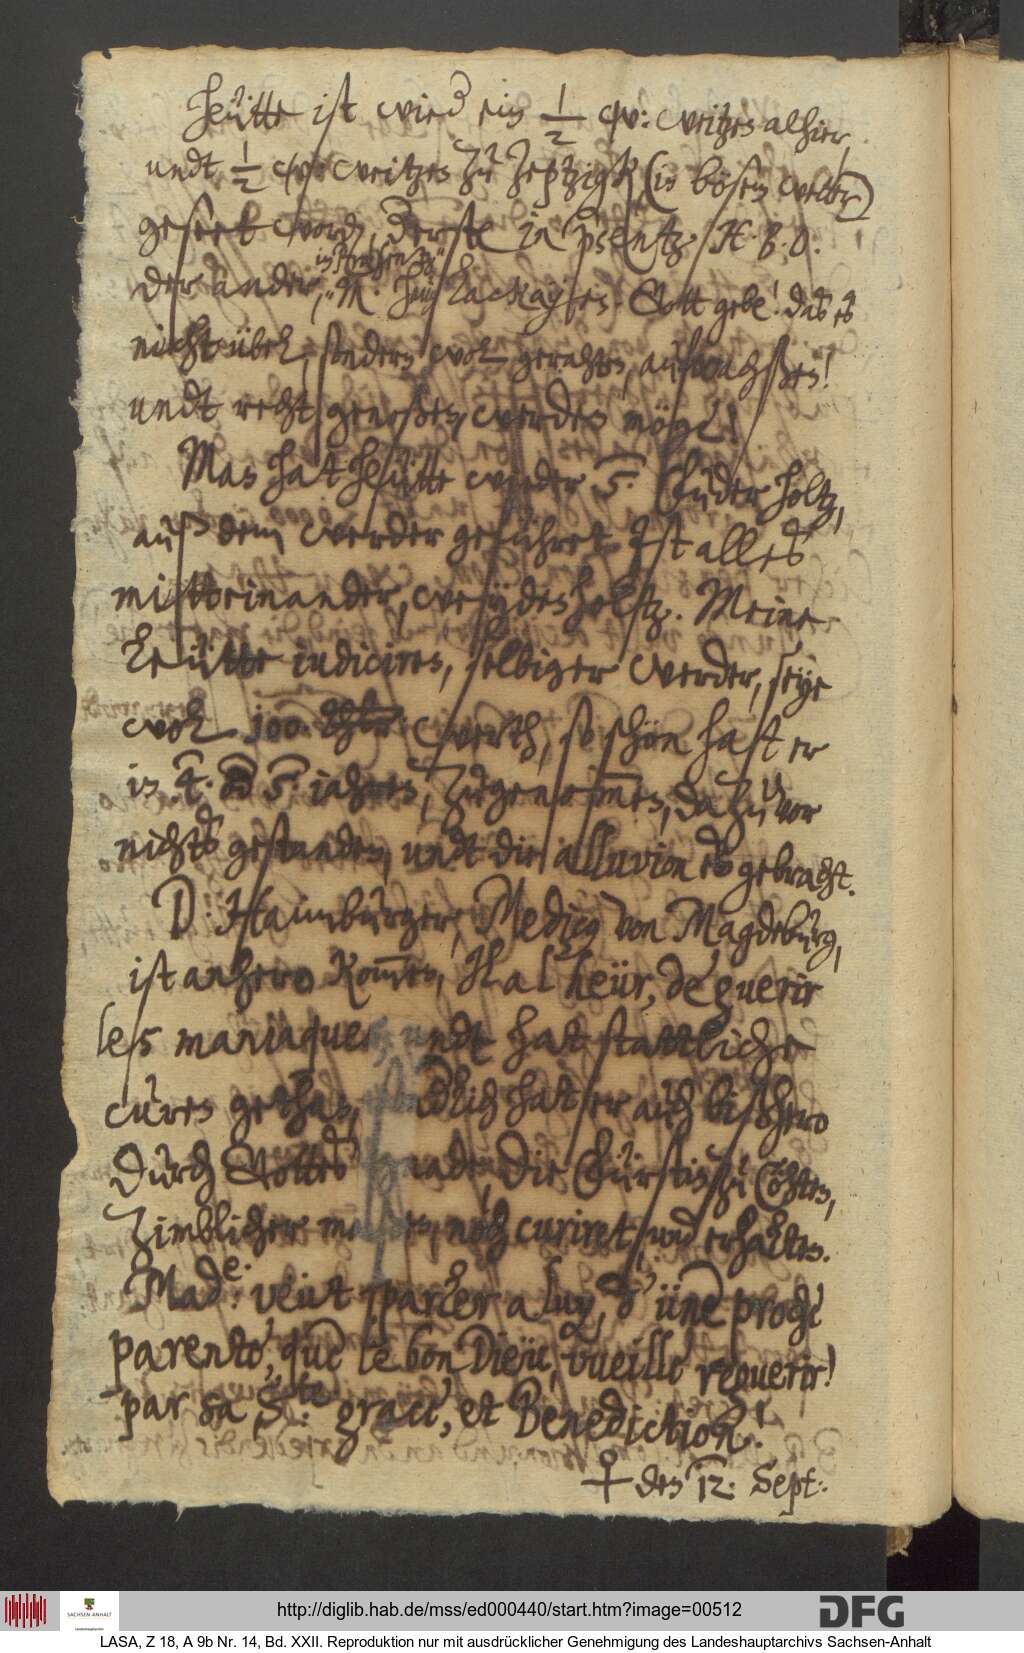 Heütte ist wied ein ½ w: weitzen alhier,
undt ½ w: weitzen zu Zeptzigk (in bösem wetter)
geseet word, der erste in pśentz H. B. D.
in præsentz
der ander, M. Lackayens. Gott gebe! das es
nicht übel, sondern wol gerahten, aufwachßen!
undt recht genoßen, werden möge!
Man hat heütte wieder 5. Fuder holtz,
auß dem werder geführet. Ist alles
mitteinander, weydenholtz. Meine
Leütte iudiciren, selbiger werder, seye
wol 100 Thlr: werth, so schön hatt er
in 4. 5. iahren, zugenom̅en, da zuvor
nichts gestanden, undt die alluvion es gebracht.
D: Hamburger, Medicq von Magdeburg,
ist anhero kom̅en, Il a l'heür, de guerir
les maniaques, undt hat stattliche
curen gethan, endlich hat er auch bißhero
durch Gottes gnade, die Fürstin zu Cöhten,
zimblicher maßen, noch curiret und erhalten.
Made: veut parler a luy, d'üne proche
parente, que le bon Dieu, vueille reguerir!
par sa Ste: grace, et Benediction!
♀ den 12. Sept:
http://diglib.hab.de/mss/ed000440/start.htm?image=00512
SACHSEN-ANHALT
DFG
LASA, Z 18, A 9b Nr. 14, Bd. XXII. Reproduktion nur mit ausdrücklicher Genehmigung des Landeshauptarchivs Sachsen-Anhalt